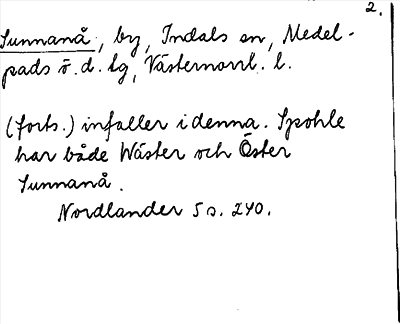 2.
Sunnanå, by, Indals sn, Medel-
pads ö. d. tg, Västernorrl. l.
(forts.) infaller i denna. Spohle
har både Wäster och Öster
Sunnanå.
Nordlander 5 s. 240.